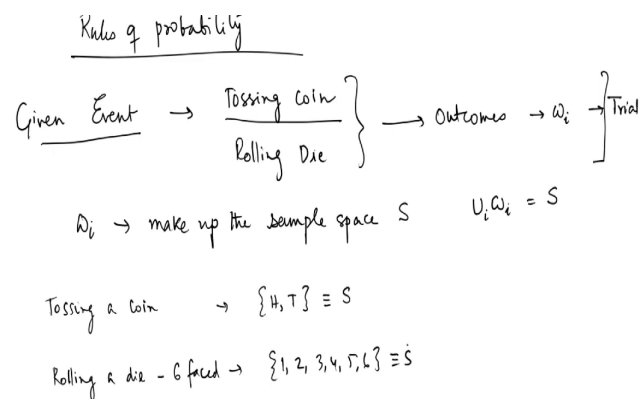 Rules of probability
Given Event → Tossing coin / Rolling Die } → Outcomes → ωi → ] Trial
ωi → make up the sample space S ∪iωi = S
Tossing a coin → {H, T} ≡ S
Rolling a die - 6 faced → {1, 2, 3, 4, 5, 6} ≡ S